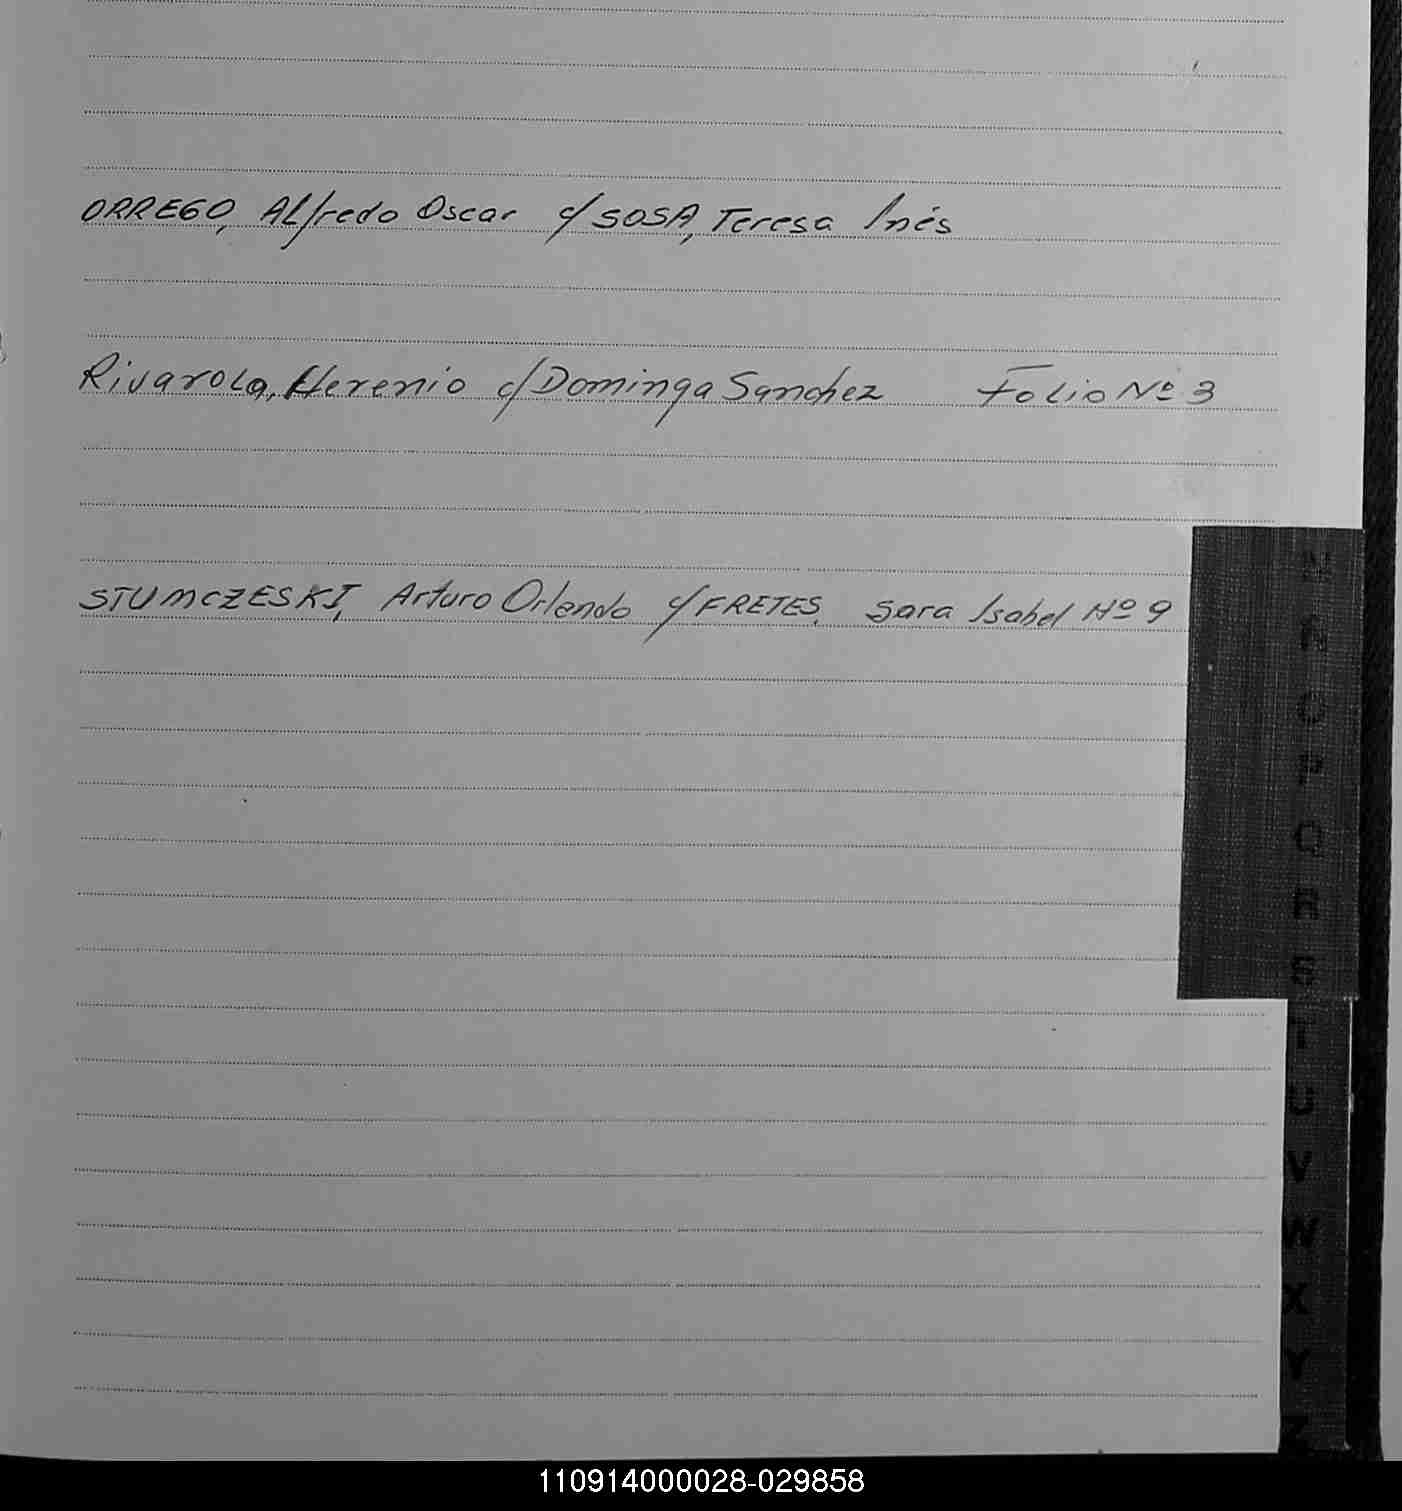 ORREGO, Alfredo Oscar c/ SOSA, Teresa Inés
Rivarola, Herenio c/ Dominga Sanchez Folio Nº 3
STUMCZESKI, Arturo Orlando c/ FRETES, Sara Isabel Nº 9
M
N
O
P
Q
R
S
T
U
V
W
X
Y
Z
110914000028-029858